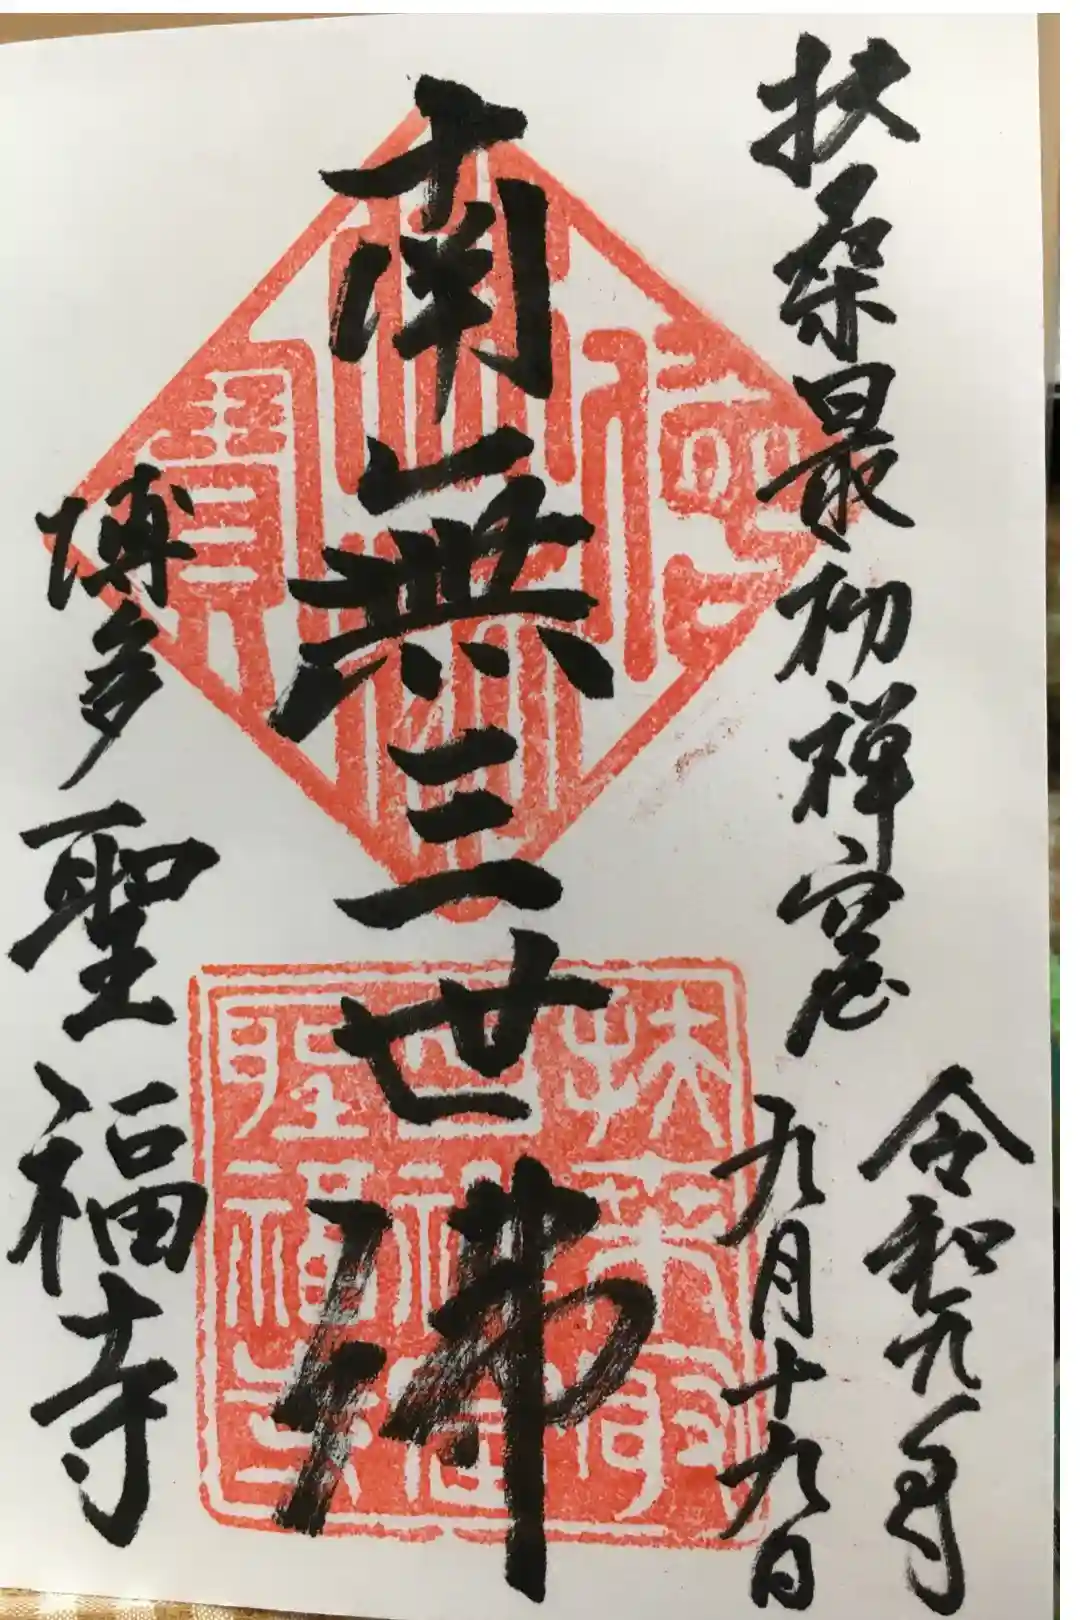 扶桑最初禅窟
令和元年
九月十九日
南無三世佛
博多 聖福寺
聖福寺